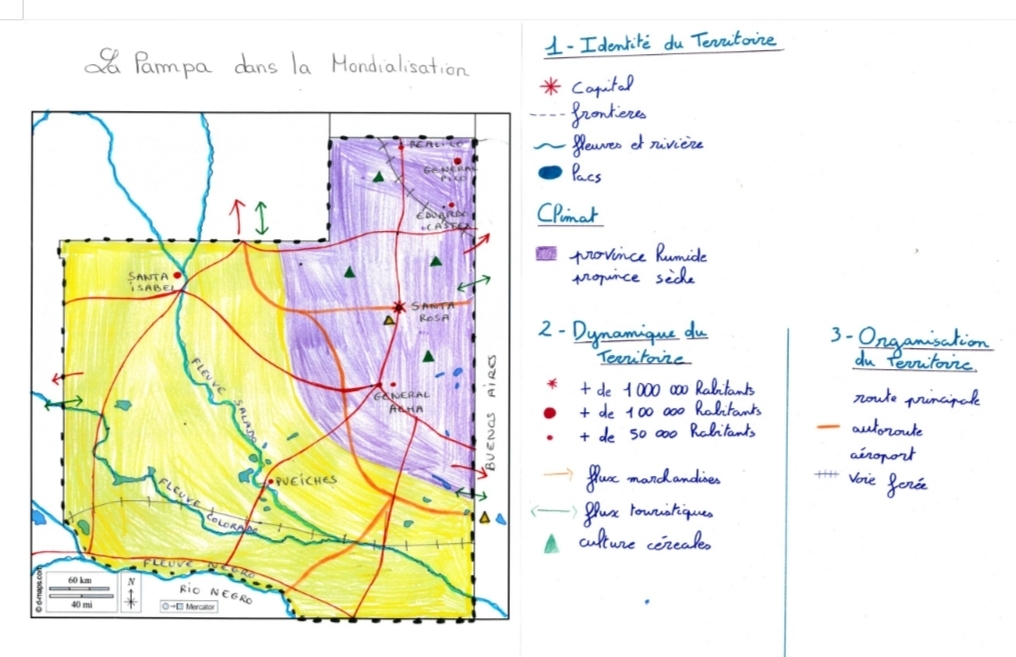 La Pampa dans la Mondialisation
REALICO
GENERAL
PICO
EDUARDO
CASTEX
SANTA
ISABEL
SANTA
ROSA
GENERAL
ACHA
FLEUVE SALADO
BUENOS AIRES
PUEICHES
FLEUVE
COLORADO
FLEUVE NEGRO
RIO NEGRO
60 km
40 mi
N
Mercator
© d-maps.com
1 - Identité du Territoire
Capital
frontieres
fleuves et rivière
Lacs
Climat
province humide
propince sèche
2 - Dynamique du
Territoire
+ de 1 000 000 habitants
+ de 100 000 habitants
+ de 50 000 habitants
flux marchandises
flux touristiques
culture céreales
3 - Organisation
du Territoire
route principale
autoroute
aéroport
Voie ferée